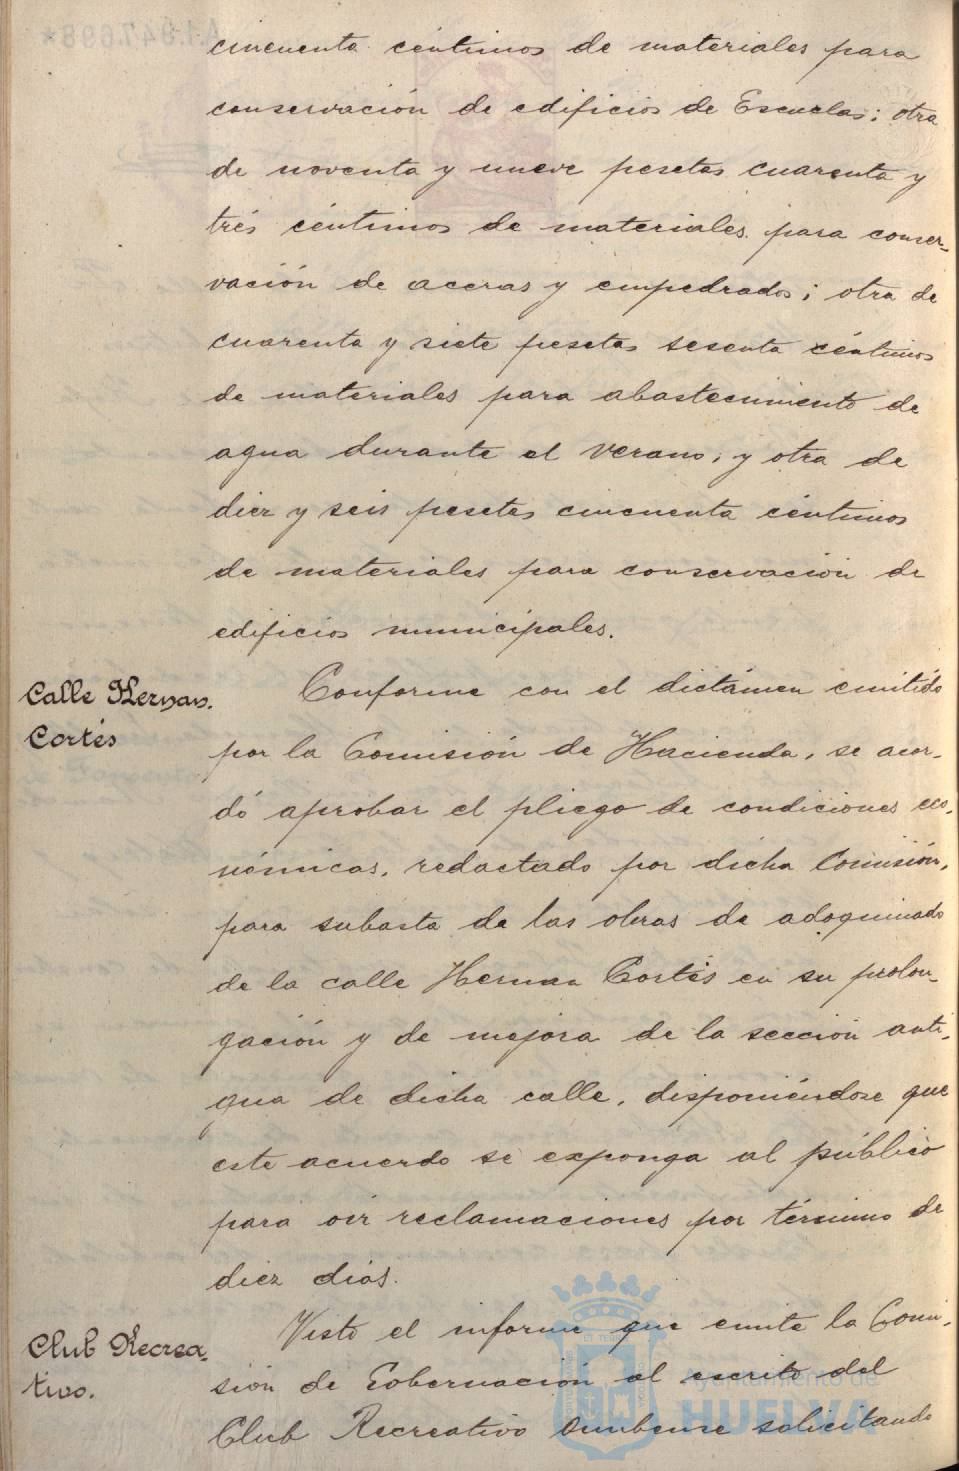 cincuenta céntimos de materiales para
conservación de edificios de Escuelas; otra
de noventa y nueve pesetas cuarenta y
trés céntimos de materiales para conser-
vación de aceras y empedrados; otra de
cuarenta y siete pesetas sesenta céntimos
de materiales para abastecimiento de
agua durante el verano; y otra de
diez y seis pesetas cincuenta céntimos
de materiales para conservación de
edificios municipales.
Calle Hernan.
Cortés
Conforme con el dictámen emitido
por la Comisión de Hacienda, se acor-
dó aprobar el pliego de condiciones eco-
nómicas, redactado por dicha Comisión,
para subasta de las obras de adoquinado
de la calle Hernan Cortés en su prolon-
gación y de mejora de la sección anti-
gua de dicha calle, disponiéndose que
este acuerdo se exponga al público
para oir reclamaciones por término de
diez dias.
Club Recrea-
tivo.
Visto el informe que emite la Comi-
sión de Gobernación al escrito del
Club Recreativo Onubense solicitando
Ayuntamiento de
HUELVA
A.1.947.698*